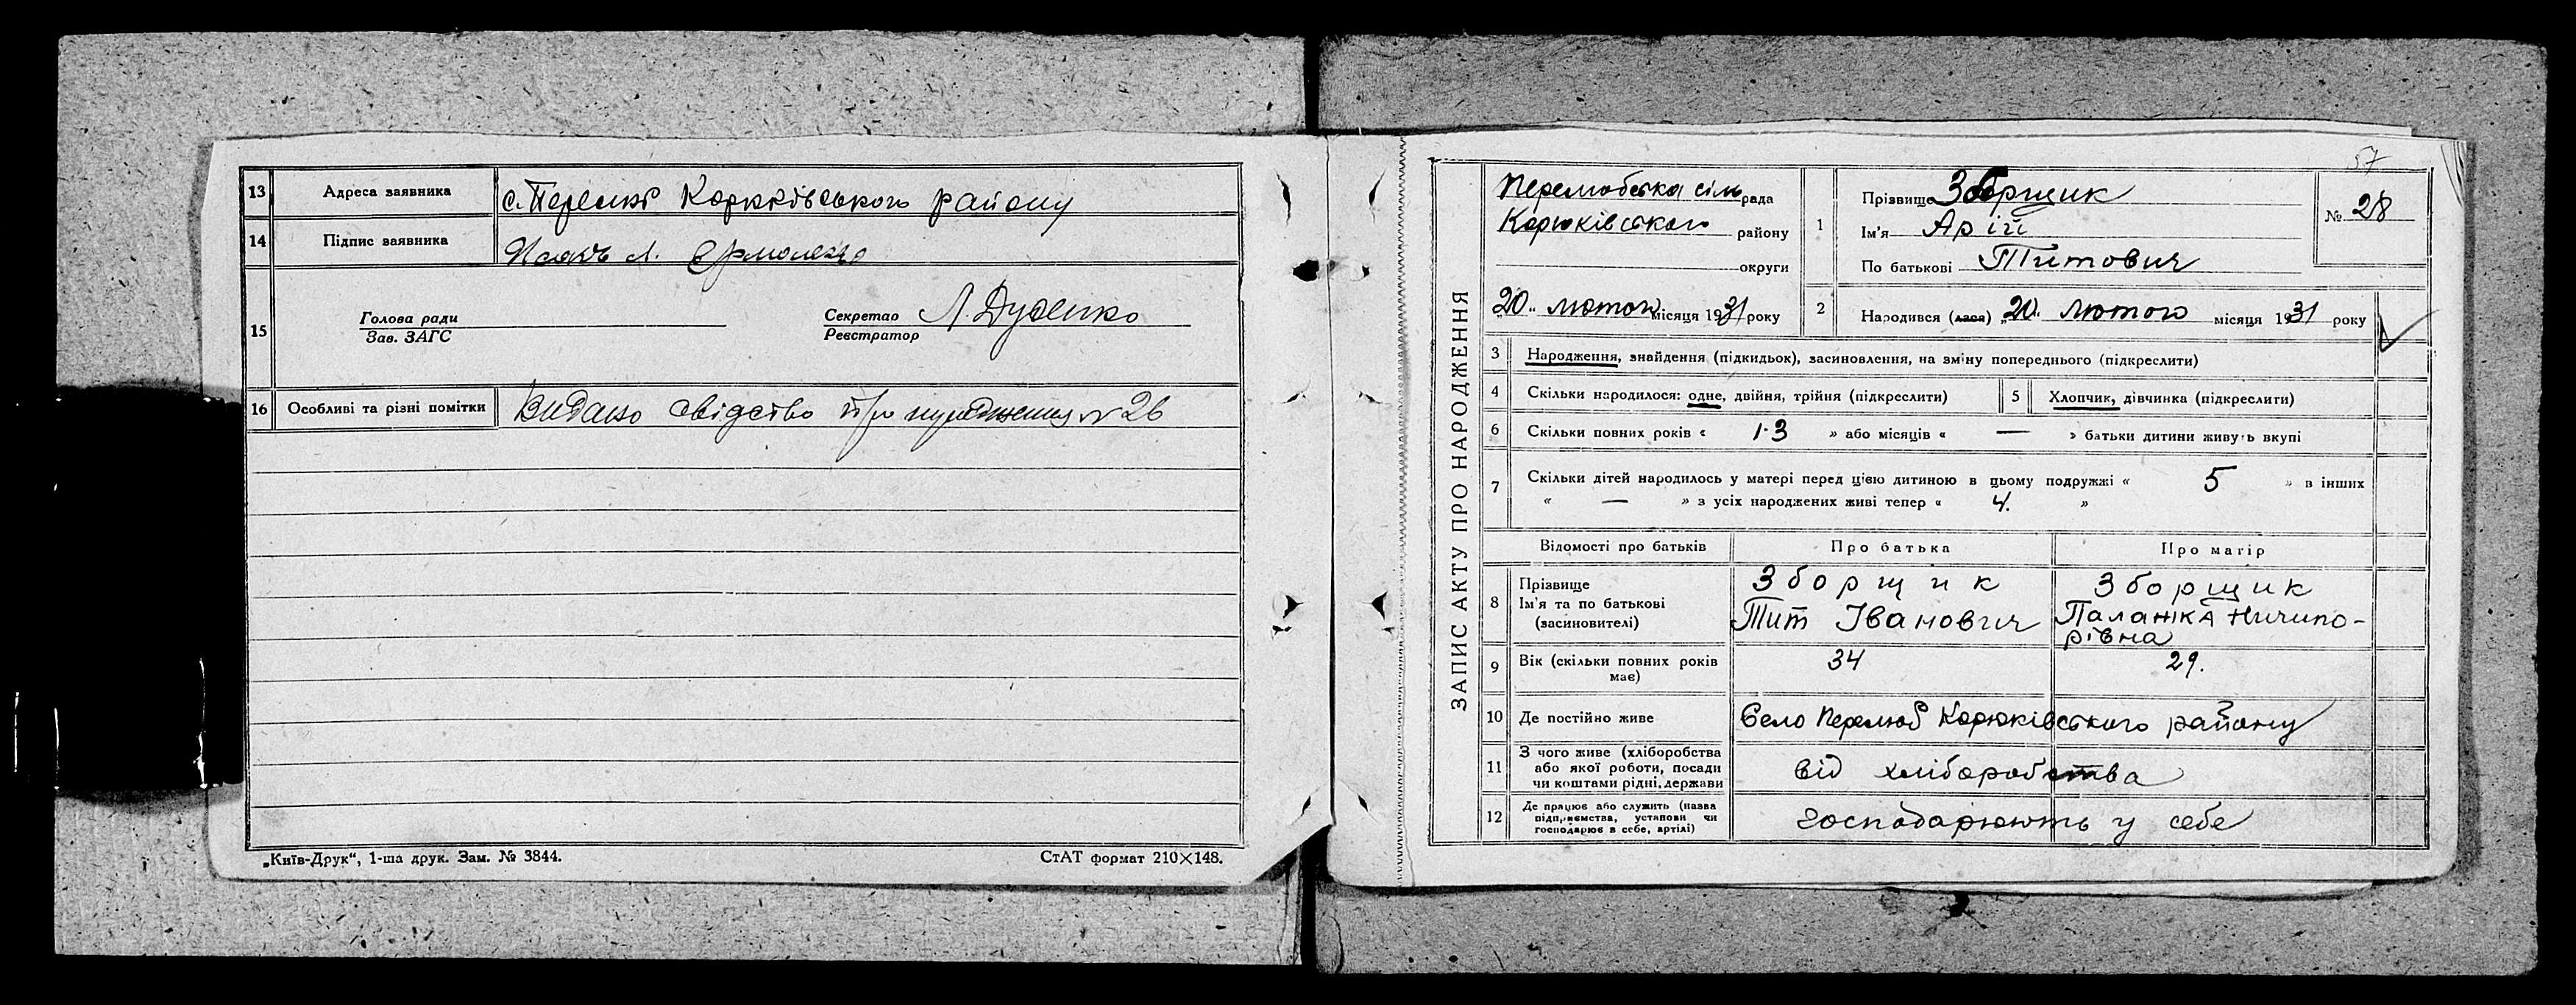 13 Адреса заявника с. Перелюб Корюківського району
14 Підпис заявника Л. Єрмоленко
15 Голова ради Секретар Л. Дуденко
Зав. ЗАГС Реєстратор
16 Особливі та різні помітки Видано свідоство про народження № 26
„Київ-Друк“, 1-ша друк. Зам. № 3844. СтАТ формат 210×148.
57
ЗАПИС АКТУ ПРО НАРОДЖЕННЯ
Перелюбська сільрада
Корюківського району
округи
20 лютого місяця 1931 року
1 Прізвище Зборщик
Ім'я Арій
По батькові Титович
№ 28
2 Народився (лася) „20“ лютого місяця 1931 року
3 Народження, знайдення (підкидьок), засиновлення, на зміну попереднього (підкреслити)
4 Скільки народилося: одне, двійня, трійня (підкреслити) 5 Хлопчик, дівчинка (підкреслити)
6 Скільки повних років « 13 » або місяців « — » батьки дитини живуть вкупі
7 Скільки дітей народилось у матері перед цією дитиною в цьому подружжі « 5 » в інших
« — » з усіх народжених живі тепер « 4. »
Відомості про батьків Про батька Про матір
8 Прізвище Зборщик Зборщик
Ім'я та по батькові Тит Іванович Паланка Ничипо-
(засиновителі) рівна
9 Вік (скільки повних років 34 29.
має)
10 Де постійно живе Село Перелюб Корюківського району
11 З чого живе (хліборобства
або якої роботи, посади від хліборобства
чи коштами рідні, держави
12 Де працює або служить (назва
підприємства, установи чи господарюють у себе
господарює в себе, артілі)